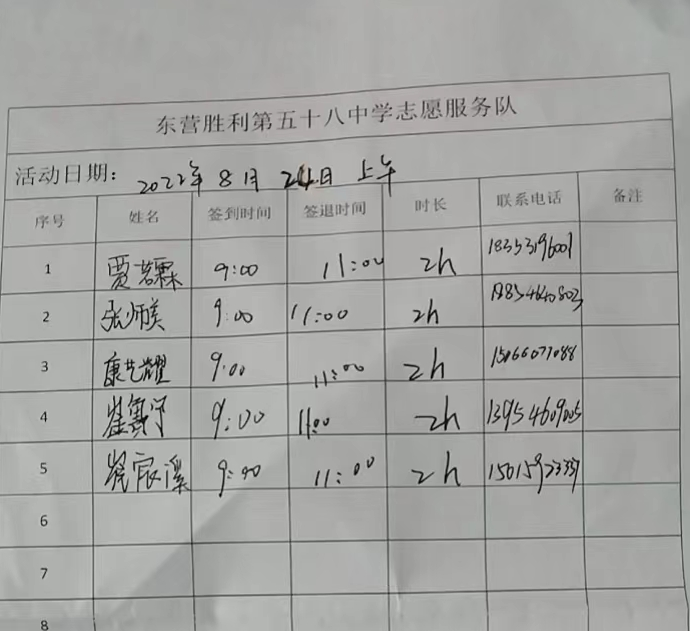 东营胜利第五十八中学志愿服务队
活动日期： 2022年 8月 24日 上午
序号 姓名 签到时间 签退时间 时长 联系电话 备注
1 贾若霖 9:00 11:00 2h 18353196001
2 张师美 9:00 11:00 2h
3 康艺耀 9:00 11:00 2h 15066077088
4 9:00 11:00 2h 13954609005
5 9:00 11:00 2h
6
7
8